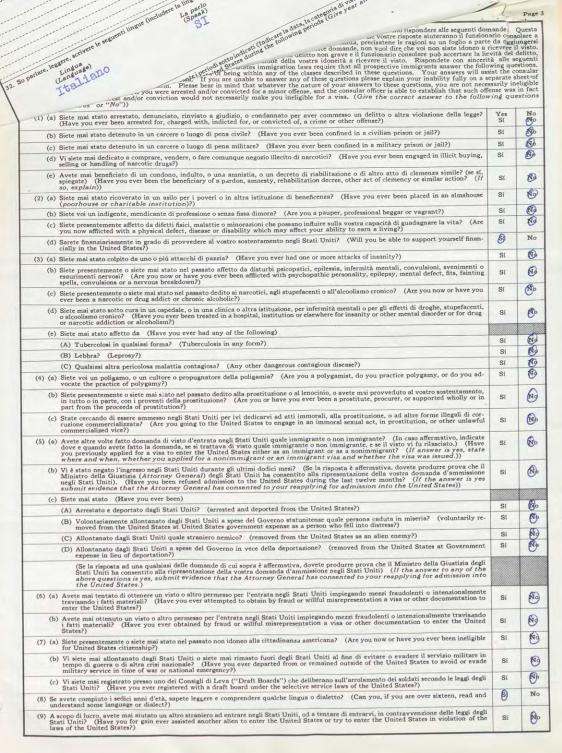 Page 3
32. So parlare, leggere, scrivere le seguenti lingue (includere la lingua
Lingua
(Language)
Italiano
Lo parlo
(Speak)
SI
States during the following periods (Give year
rispondere alle seguenti domande. Questa
vostre risposte aiuteranno il funzionario consolare a
non vuol dire che voi non siete idoneo a ricevere il visto.
non grave e il funzionario consolare può accertare la lievità del delitto,
vostra idoneità a ricevere il visto. Rispondete con sincerità alle seguenti
immigration laws require that all prospective immigrants answer the following questions.
of being within any of the classes described in these questions. Your answers will assist the consular
If you are unable to answer any of these questions please explain your inability fully on a separate sheet of
Please bear in mind that whatever the nature of your answers to these questions, you are not necessarily ineligible
you were arrested and/or convicted for a minor offense, and the consular officer is able to establish that such offense was in fact
and/or conviction would not necessarily make you ineligible for a visa. (Give the correct answer to the following questions
or "No"))
(1) (a) Siete mai stato arrestato, denunciato, rinviato a giudizio, o condannato per aver commesso un delitto o altra violazione della legge? Yes No
(Have you ever been arrested for, charged with, indicted for, or convicted of, a crime or other offense?) Sì No
(b) Siete mai stato detenuto in un carcere o luogo di pena civile? (Have you ever been confined in a civilian prison or jail?) Sì No
(c) Siete mai stato detenuto in un carcere o luogo di pena militare? (Have you ever been confined in a military prison or jail?) Sì No
(d) Vi siete mai dedicato a comprare, vendere, o fare comunque negozio illecito di narcotici? (Have you ever been engaged in illicit buying, Sì No
selling or handling of narcotic drugs?)
(e) Avete mai beneficiato di un condono, indulto, o una amnistia, o un decreto di riabilitazione o di altro atto di clemenza simile? (se sì,
spiegate) (Have you ever been the beneficiary of a pardon, amnesty, rehabilitation decree, other act of clemency or similar action? (If Sì No
so, explain))
(2) (a) Siete mai stato ricoverato in un asilo per i poveri o in altra istituzione di beneficenza? (Have you ever been placed in an almshouse Sì No
(poorhouse or charitable institution)?)
(b) Siete voi un indigente, mendicante di professione o senza fissa dimora? (Are you a pauper, professional beggar or vagrant?) Sì No
(c) Siete presentemente affetto da difetti fisici, malattie o minorazioni che possano influire sulla vostra capacità di guadagnare la vita? (Are Sì No
you now afflicted with a physical defect, disease or disability which may affect your ability to earn a living?)
(d) Sarete finanziariamente in grado di provvedere al vostro sostentamento negli Stati Uniti? (Will you be able to support yourself finan- Sì No
cially in the United States?)
(3) (a) Siete mai stato colpito da uno o più attacchi di pazzia? (Have you ever had one or more attacks of insanity?) Sì No
(b) Siete presentemente o siete mai stato nel passato affetto da disturbi psicopatici, epilessia, infermità mentali, convulsioni, svenimenti o
esaurimenti nervosi? (Are you now or have you ever been afflicted with psychopathic personality, epilepsy, mental defect, fits, fainting Sì No
spells, convulsions or a nervous breakdown?)
(c) Siete presentemente o siete mai stato nel passato dedito ai narcotici, agli stupefacenti o all'alcoolismo cronico? (Are you now or have you Sì No
ever been a narcotic or drug addict or chronic alcoholic?)
(d) Siete mai stato sotto cura in un ospedale, o in una clinica o altra istituzione, per infermità mentali o per gli effetti di droghe, stupefacenti,
o alcoolismo cronico? (Have you ever been treated in a hospital, institution or elsewhere for insanity or other mental disorder or for drug Sì No
or narcotic addiction or alcoholism?)
(e) Siete mai stato affetto da (Have you ever had any of the following)
(A) Tubercolosi in qualsiasi forma? (Tuberculosis in any form?) Sì No
(B) Lebbra? (Leprosy?) Sì No
(C) Qualsiasi altra pericolosa malattia contagiosa? (Any other dangerous contagious disease?) Sì No
(4) (a) Siete voi un poligamo, o un cultore o propugnatore della poligamia? (Are you a polygamist, do you practice polygamy, or do you ad- Sì No
vocate the practice of polygamy?)
(b) Siete presentemente o siete mai stato nel passato dedito alla prostituzione o al lenocinio, o avete mai provveduto al vostro sostentamento,
in tutto o in parte, con i proventi della prostituzione? (Are you or have you ever been a prostitute, procurer, or supported wholly or in Sì No
part from the proceeds of prostitution?)
(c) State cercando di essere ammesso negli Stati Uniti per ivi dedicarvi ad atti immorali, alla prostituzione, o ad altre forme illegali di cor-
ruzione commercializzata? (Are you going to the United States to engage in an immoral sexual act, in prostitution, or other unlawful Sì No
commercialized vice?)
(5) (a) Avete altre volte fatto domanda di visto d'entrata negli Stati Uniti quale immigrante o non immigrante? (In caso affermativo, indicate
dove e quando avete fatto la domanda, se si trattava di visto quale immigrante o non immigrante, e se il visto vi fu rilasciato.) (Have Sì No
you previously applied for a visa to enter the United States either as an immigrant or as a nonimmigrant? (If answer is yes, state
where and when, whether you applied for a nonimmigrant or an immigrant visa and whether the visa was issued.))
(b) Vi è stato negato l'ingresso negli Stati Uniti durante gli ultimi dodici mesi? (Se la risposta è affermativa, dovete produrre prova che il
Ministro della Giustizia (Attorney General) negli Stati Uniti ha consentito alla ripresentazione della vostra domanda d'ammissione Sì No
negli Stati Uniti). (Have you been refused admission to the United States during the last twelve months? (If the answer is yes
submit evidence that the Attorney General has consented to your reapplying for admission into the United States))
(c) Siete mai stato (Have you ever been)
(A) Arrestato e deportato dagli Stati Uniti? (arrested and deported from the United States?) Sì No
(B) Volontariamente allontanato dagli Stati Uniti a spese del Governo statunitense quale persona caduta in miseria? (voluntarily re- Sì No
moved from the United States at United States government expense as a person who fell into distress?)
(C) Allontanato dagli Stati Uniti quale straniero nemico? (removed from the United States as an alien enemy?) Sì No
(D) Allontanato dagli Stati Uniti a spese del Governo in vece della deportazione? (removed from the United States at Government Sì No
expense in lieu of deportation?)
(Se la risposta ad una qualsiasi delle domande di cui sopra è affermativa, dovete produrre prova che il Ministro della Giustizia degli
Stati Uniti ha consentito alla ripresentazione della vostra domanda d'ammissione negli Stati Uniti) (If the answer to any of the
above questions is yes, submit evidence that the Attorney General has consented to your reapplying for admission into
the United States.)
(6) (a) Avete mai tentato di ottenere un visto o altro permesso per l'entrata negli Stati Uniti impiegando messi fraudolenti o intenzionalmente
travisando i fatti materiali? (Have you ever attempted to obtain by fraud or willful misrepresentation a visa or other documentation to Sì No
enter the United States?)
(b) Avete mai ottenuto un visto o altro permesso per l'entrata negli Stati Uniti impiegando messi fraudolenti o intenzionalmente travisando
i fatti materiali? (Have you ever obtained by fraud or willful misrepresentation a visa or other documentation to enter the United Sì No
States?)
(7) (a) Siete presentemente o siete mai stato nel passato non idoneo alla cittadinanza americana? (Are you now or have you ever been ineligible Sì No
for United States citizenship?)
(b) Vi siete mai allontanato dagli Stati Uniti o siete mai rimasto fuori degli Stati Uniti al fine di evitare o evadere il servizio militare in
tempo di guerra o di altra crisi nazionale? (Have you ever departed from or remained outside of the United States to avoid or evade Sì No
military service in time of war or national emergency?)
(c) Vi siete mai registrato presso uno dei Consigli di Leva ("Draft Boards") che deliberano sull'arrolamento dei soldati secondo le leggi degli Sì No
Stati Uniti? (Have you ever registered with a draft board under the selective service laws of the United States?)
(8) Se avete compiuto i sedici anni d'età, sapete leggere e comprendere qualche lingua o dialetto? (Can you, if you are over sixteen, read and Sì No
understand some language or dialect?)
(9) A scopo di lucro, avete mai aiutato un altro straniero ad entrare negli Stati Uniti, od a tentare di entrarvi, in contravvenzione delle leggi degli
Stati Uniti? (Have you for gain ever assisted another alien to enter the United States or try to enter the United States in violation of the Sì No
laws of the United States?)